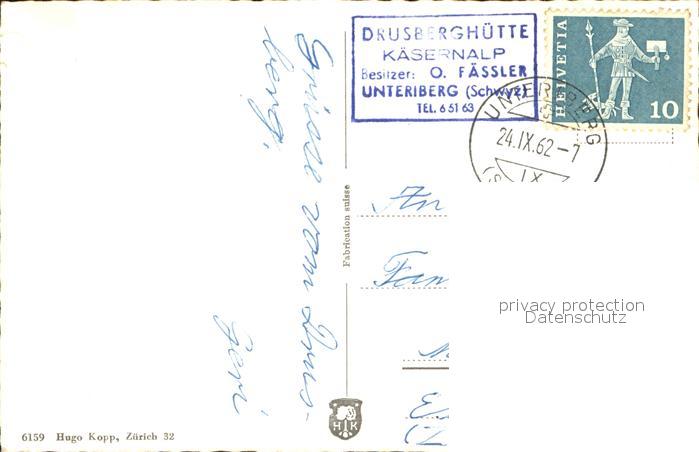 DRUSBERGHÜTTE
KÄSERNALP
Besitzer: O. FÄSSLER
UNTERIBERG (Schwyz)
TEL. 6 51 63
HELVETIA
10
UNTERIBERG
24.IX.62–7
Grüsse vom Drus-
berg,
Fabrication suisse
An
Fam
privacy protection
Datenschutz
HK
6159 Hugo Kopp, Zürich 32